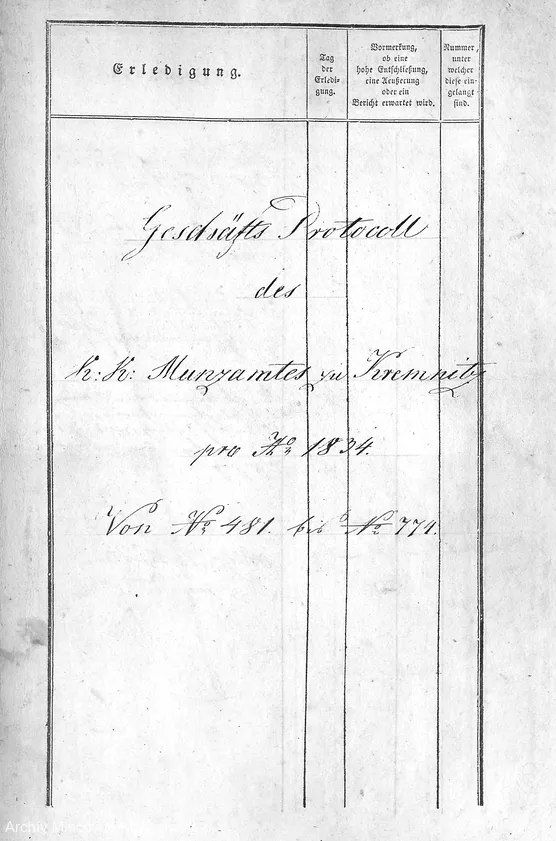 Erledigung.
Tag
der
Erledi-
gung.
Vormerkung,
ob eine
hohe Entschließung,
eine Aeußerung
oder ein
Bericht erwartet wird.
Nummer,
unter
welcher
diese ein-
gelangt
sind.
Geschäfts Protocoll
des
K: K: Munzamtes zu Kremnitz
pro Ao 1834.
Von No 481. bis No 774.
Archiv